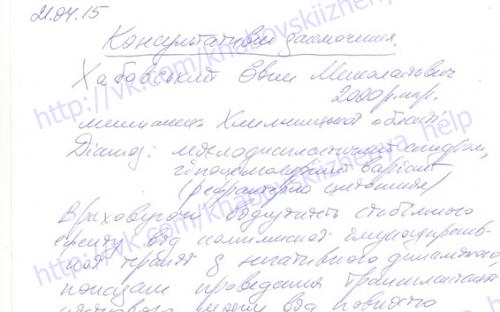 21.04.15
Консультативне заключення.
Хабовський Євген Миколайович
2000 р.нар.
мешканець Хмельницької області.
Діагноз: мієлодиспластичний синдром,
гіпоцелюлярний варіант
(рефрактерна цитопенія)
Враховуючи відсутність стабільного
ефекту від комплексної імуносупресив-
ної терапії з негативною динамікою,
показане проведення трансплантації
кісткового мозку від повністю
http://vk.com/khabovskiizhenya_help